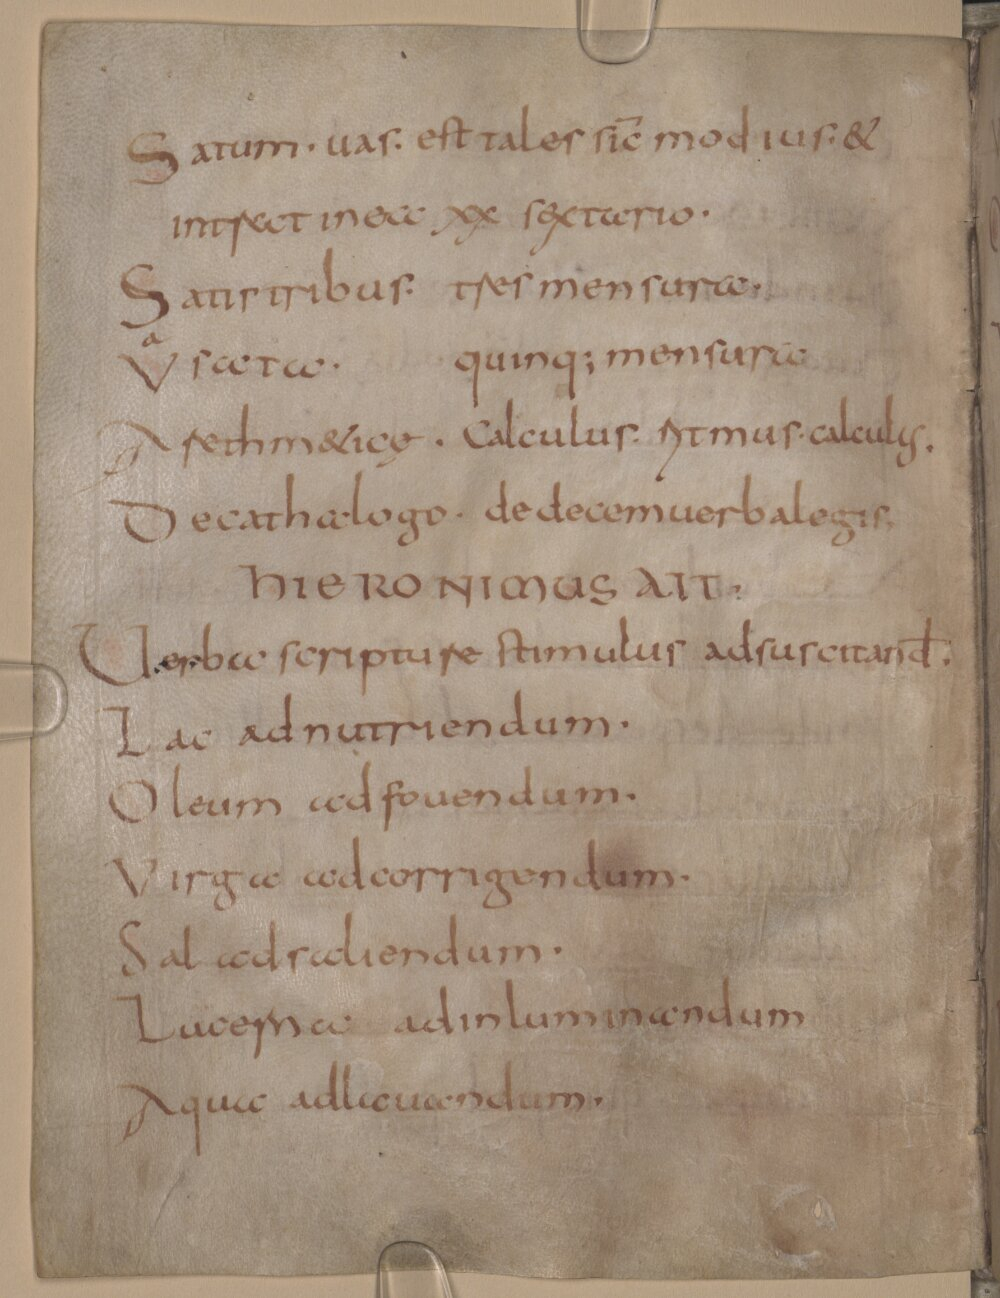 Satum · uas · est tales sic̄ modius · &
intrant in ea xx sextario ·
Satis tribus · tres mensura ·
Vasata · quinq; mensura
Arethm&icę · Calculus · ritmus · calculis.
De cathalogo · de decem uerba legis,
HIERONIMUS AIT ·
Uerba scripture stimulus ad suscitand̄ .
Lac ad nutriendum ·
Oleum ad fouendum ·
Virga ad corrigendum ·
Sal ad radiendum ·
Lucerna ad inluminandum
Aqua ad lauandum ·